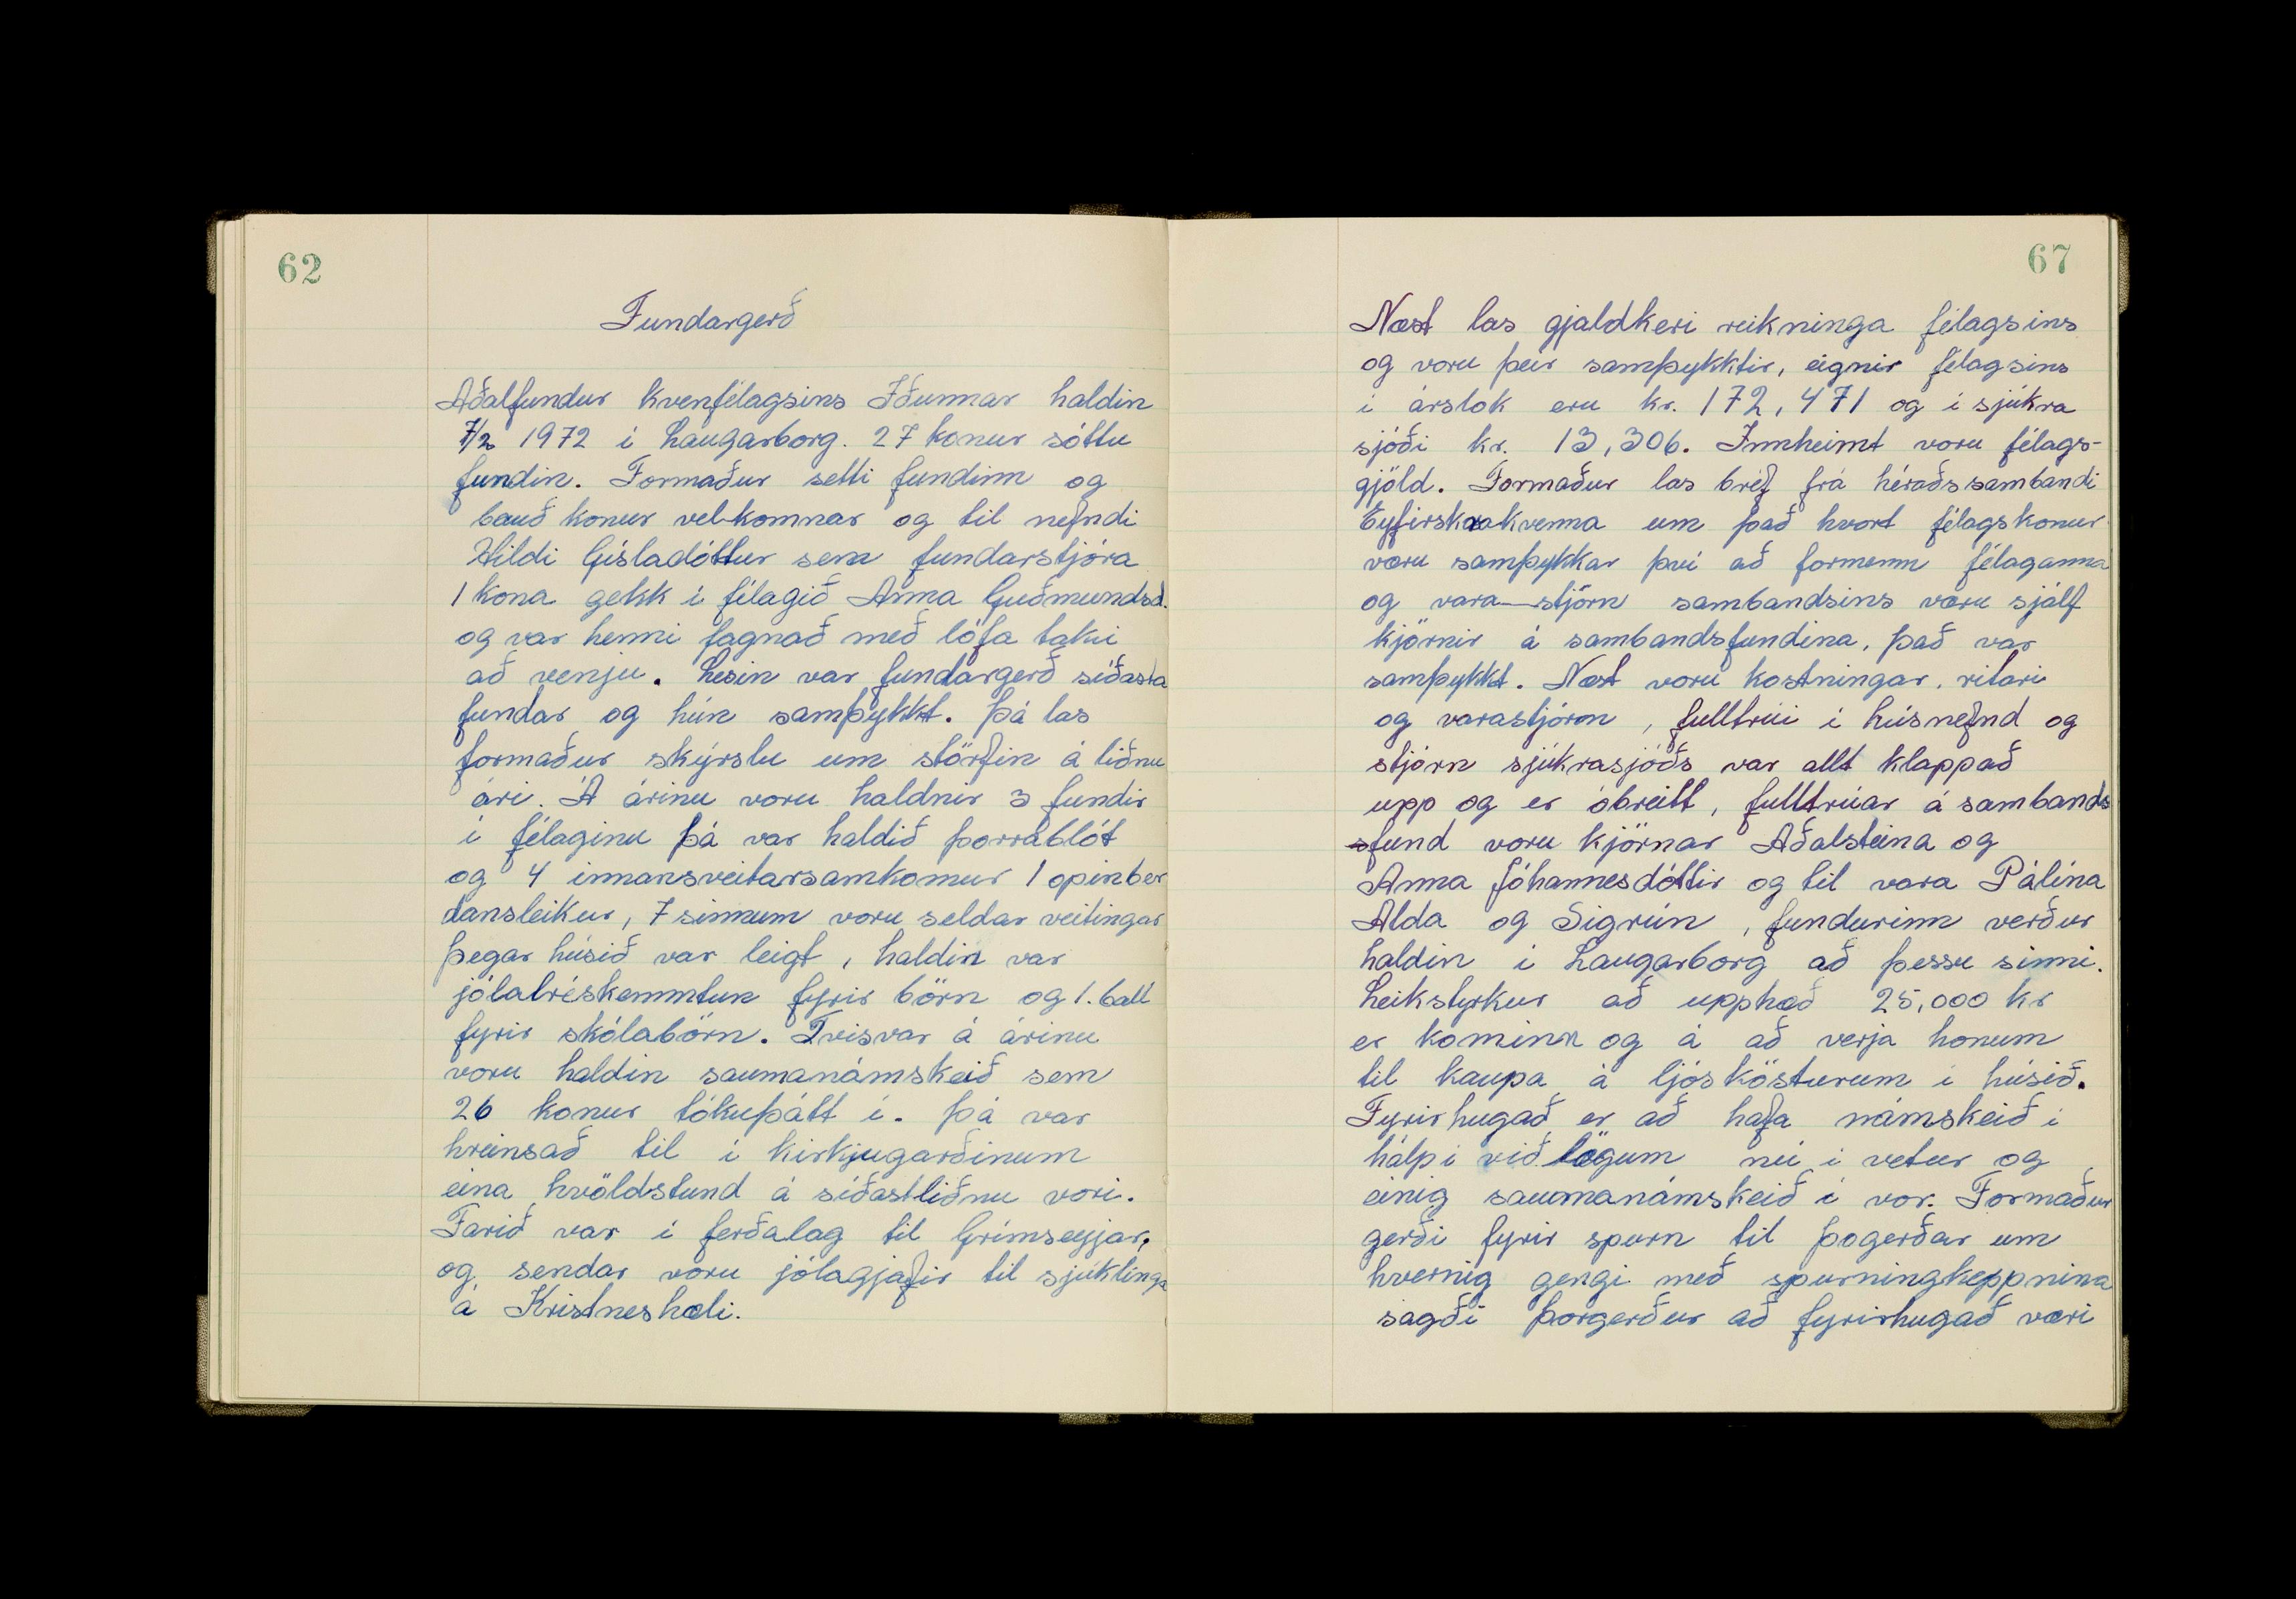 62
Fundargerð
Aðalfundur kvenfélagsins Iðunnar haldin
7/2 1972 í Laugarborg. 27 konur sóttu
fundin. Formaður setti fundinn og
bauð konur vel-komnar og til nefndi
Hildi Gísladóttur sem fundarstjóra
1 kona gekk í félagið Anna Guðmundsd.
og var henni fagnað með lófa taki
að venju. Lesin var fundargerð síðasta
fundar og hún samþykkt. Þá las
formaður skýrslu um störfin á liðnu
ári. Á árinu voru haldnir 3 fundir
í félaginu þá var haldið þorrablót
og 4 innansveitarsamkomur 1 opinber
dansleikur, 7 sinnum voru seldar veitingar
þegar húsið var leigt, haldin var
jólatréskemmtun fyrir börn og 1. ball
fyrir skólabörn. Tvisvar á árinu
voru haldin saumanámskeið sem
26 konur tókuþátt í. Þá var
hreinsað til í kirkjugarðinum
eina kvöldstund á síðastliðnu vori.
Farið var í ferðalag til Grímseyjar,
og sendar voru jólagjafir til sjúklinga
á Kristneshæli.
67
Næst las gjaldkeri reikninga félagsins
og voru þeir samþykktir, eignir félagsins
í árslok eru kr. 172,471 og í sjúkra
sjóði kr. 13,306. Innheimt voru félags-
gjöld. Formaður las bréf frá héraðssambandi
Eyfirskrakvenna um það hvort félagskonur
væru samþykkar því að formenn félaganna
og vara-stjórn sambandsins væru sjálf
kjörnir á sambandsfundina, það var
samþykkt. Næst voru kostningar, ritari
og varastjórn, fulltrúi í húsnefnd og
stjórn sjúkrasjóðs var allt klappað
upp og er óbreitt, fulltrúar á sambands
-fund voru kjörnar Aðalsteina og
Anna Jóhannesdóttir og til vara Pálína
Alda og Sigrún, fundurinn verður
haldin í Laugarborg að þessu sinni.
Leikstyrkur að upphæð 25,000 kr
er kominn og á að verja honum
til kaupa á ljóskösturum í húsið.
Fyrirhugað er að hafa námskeið í
hálpi við lögum nú í vetur og
einig saumanámskeið í vor. Formaður
gerði fyrir spurn til Þogerðar um
hvernig gengi með spurningkeppnina
sagði Þorgerður að fyrirhugað væri